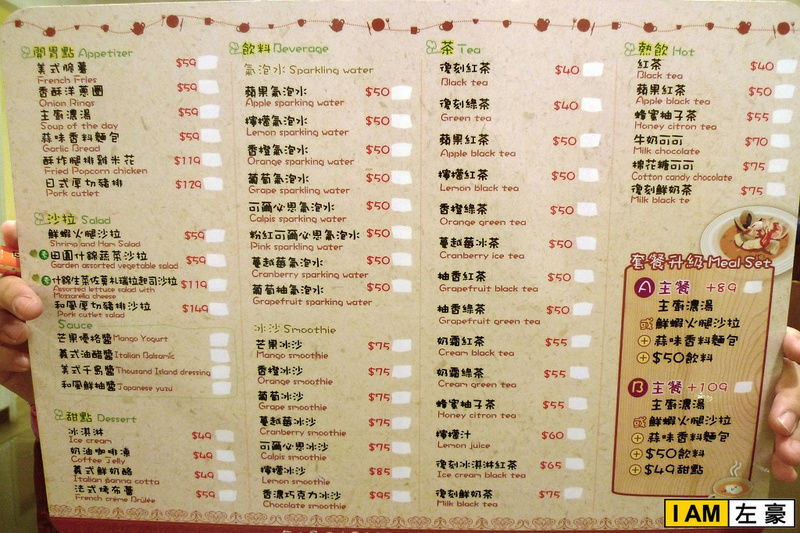 開胃點 Appetizer
美式脆薯 $59
French Fries
香酥洋蔥圈 $59
Onion Rings
主廚濃湯 $59
Soup of the day
蒜味香料麵包 $59
Garlic Bread
酥炸腿排雞米花 $119
Fried Popcorn chicken
日式厚切豬排 $129
Pork cutlet
沙拉 Salad
鮮蝦火腿沙拉 $59
Shrimp and Ham Salad
田園什錦蔬菜沙拉 $59
Garden assorted vegetable salad
什錦生菜佐莫札瑞拉起司沙拉 $119
Assorted lettuce salad with
Mozzarella cheese
和風厚切豬排沙拉 $149
Pork cutlet salad
Sauce
芒果優格醬 Mango Yogurt
義式油醋醬 Italian Balsamic
美式千島醬 Thousand Island dressing
和風鮮柚醬 Japanese yuzu
甜點 Dessert
冰淇淋 $49
Ice cream
奶油咖啡凍 $49
Coffee Jelly
義式鮮奶酪 $49
Italian panna cotta
法式烤布蕾 $59
French crème Brûlée
飲料 Beverage
氣泡水 Sparkling water
蘋果氣泡水 $50
Apple sparking water
檸檬氣泡水 $50
Lemon sparking water
香橙氣泡水 $50
Orange sparking water
葡萄氣泡水 $50
Grape sparkling water
可爾必思氣泡水 $50
Calpis sparking water
粉紅可爾必思氣泡水 $50
Pink sparkling water
蔓越莓氣泡水 $50
Cranberry sparking water
葡萄柚氣泡水 $50
Grapefruit sparking water
冰沙 Smoothie
芒果冰沙 $75
Mango smoothie
香橙冰沙 $75
Orange smoothie
葡萄冰沙 $75
Grape smoothie
蔓越莓冰沙 $75
Cranberry smoothie
可爾必思冰沙 $75
Calpis smoothie
檸檬冰沙 $85
Lemon smoothie
香濃巧克力冰沙 $95
Chocolate smoothie
茶 Tea
復刻紅茶 $40
Black tea
復刻綠茶 $40
Green tea
蘋果紅茶 $50
Apple black tea
檸檬紅茶 $50
Lemon black tea
香橙綠茶 $50
Orange green tea
蔓越莓冰茶 $50
Cranberry ice tea
柚香紅茶 $50
Grapefruit black tea
柚香綠茶 $50
Grapefruit green tea
奶霜紅茶 $55
Cream black tea
奶霜綠茶 $55
Cream green tea
蜂蜜柚子茶 $55
Honey citron tea
檸檬汁 $60
Lemon juice
復刻冰淇淋紅茶 $65
Ice cream black tea
復刻鮮奶茶 $75
Milk black tea
熱飲 Hot
紅茶 $40
Black tea
蘋果紅茶 $50
Apple black tea
蜂蜜柚子茶 $55
Honey citron tea
牛奶可可 $70
Milk chocolate
棉花糖可可 $75
Cotton candy chocolate
復刻鮮奶茶 $75
Milk black te
套餐升級 Meal Set
A 主餐 +89
主廚濃湯
或 鮮蝦火腿沙拉
+ 蒜味香料麵包
+ $50飲料
B 主餐 +109
主廚濃湯
或 鮮蝦火腿沙拉
+ 蒜味香料麵包
+ $50飲料
+ $49甜點
I AM 左豪